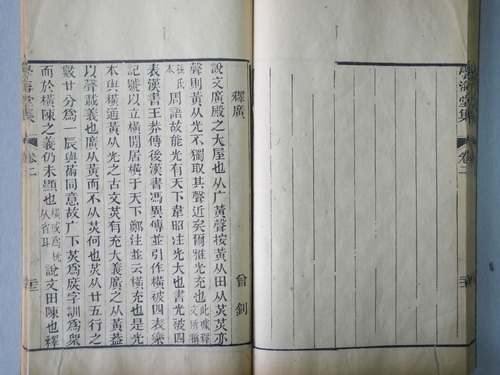 學海堂集 卷二
釋廣 曾釗
說文廣殿之大屋也从广黃聲按黃从田从炗炗亦
聲則黃从光不獨取其聲近矣爾雅光充也此據釋文所稱
孫氏本周語故能光有天下韋昭注光大也書光被四
表漢書王莽傳後漢書馮異傳並引作橫被四表樂
記號以立橫閒居橫于天下鄭注並云橫充也是光
本與橫通黃从光之古文炗有充大義廣之从黃葢
以聲載義也廣从黃而不从炗何也炗从廿五行之
數廿分爲一辰與同意故广下炗爲庶字訓爲衆
而於橫陳之義仍未顯也橫或爲桄从省耳說文田陳也釋
學海堂集 卷二